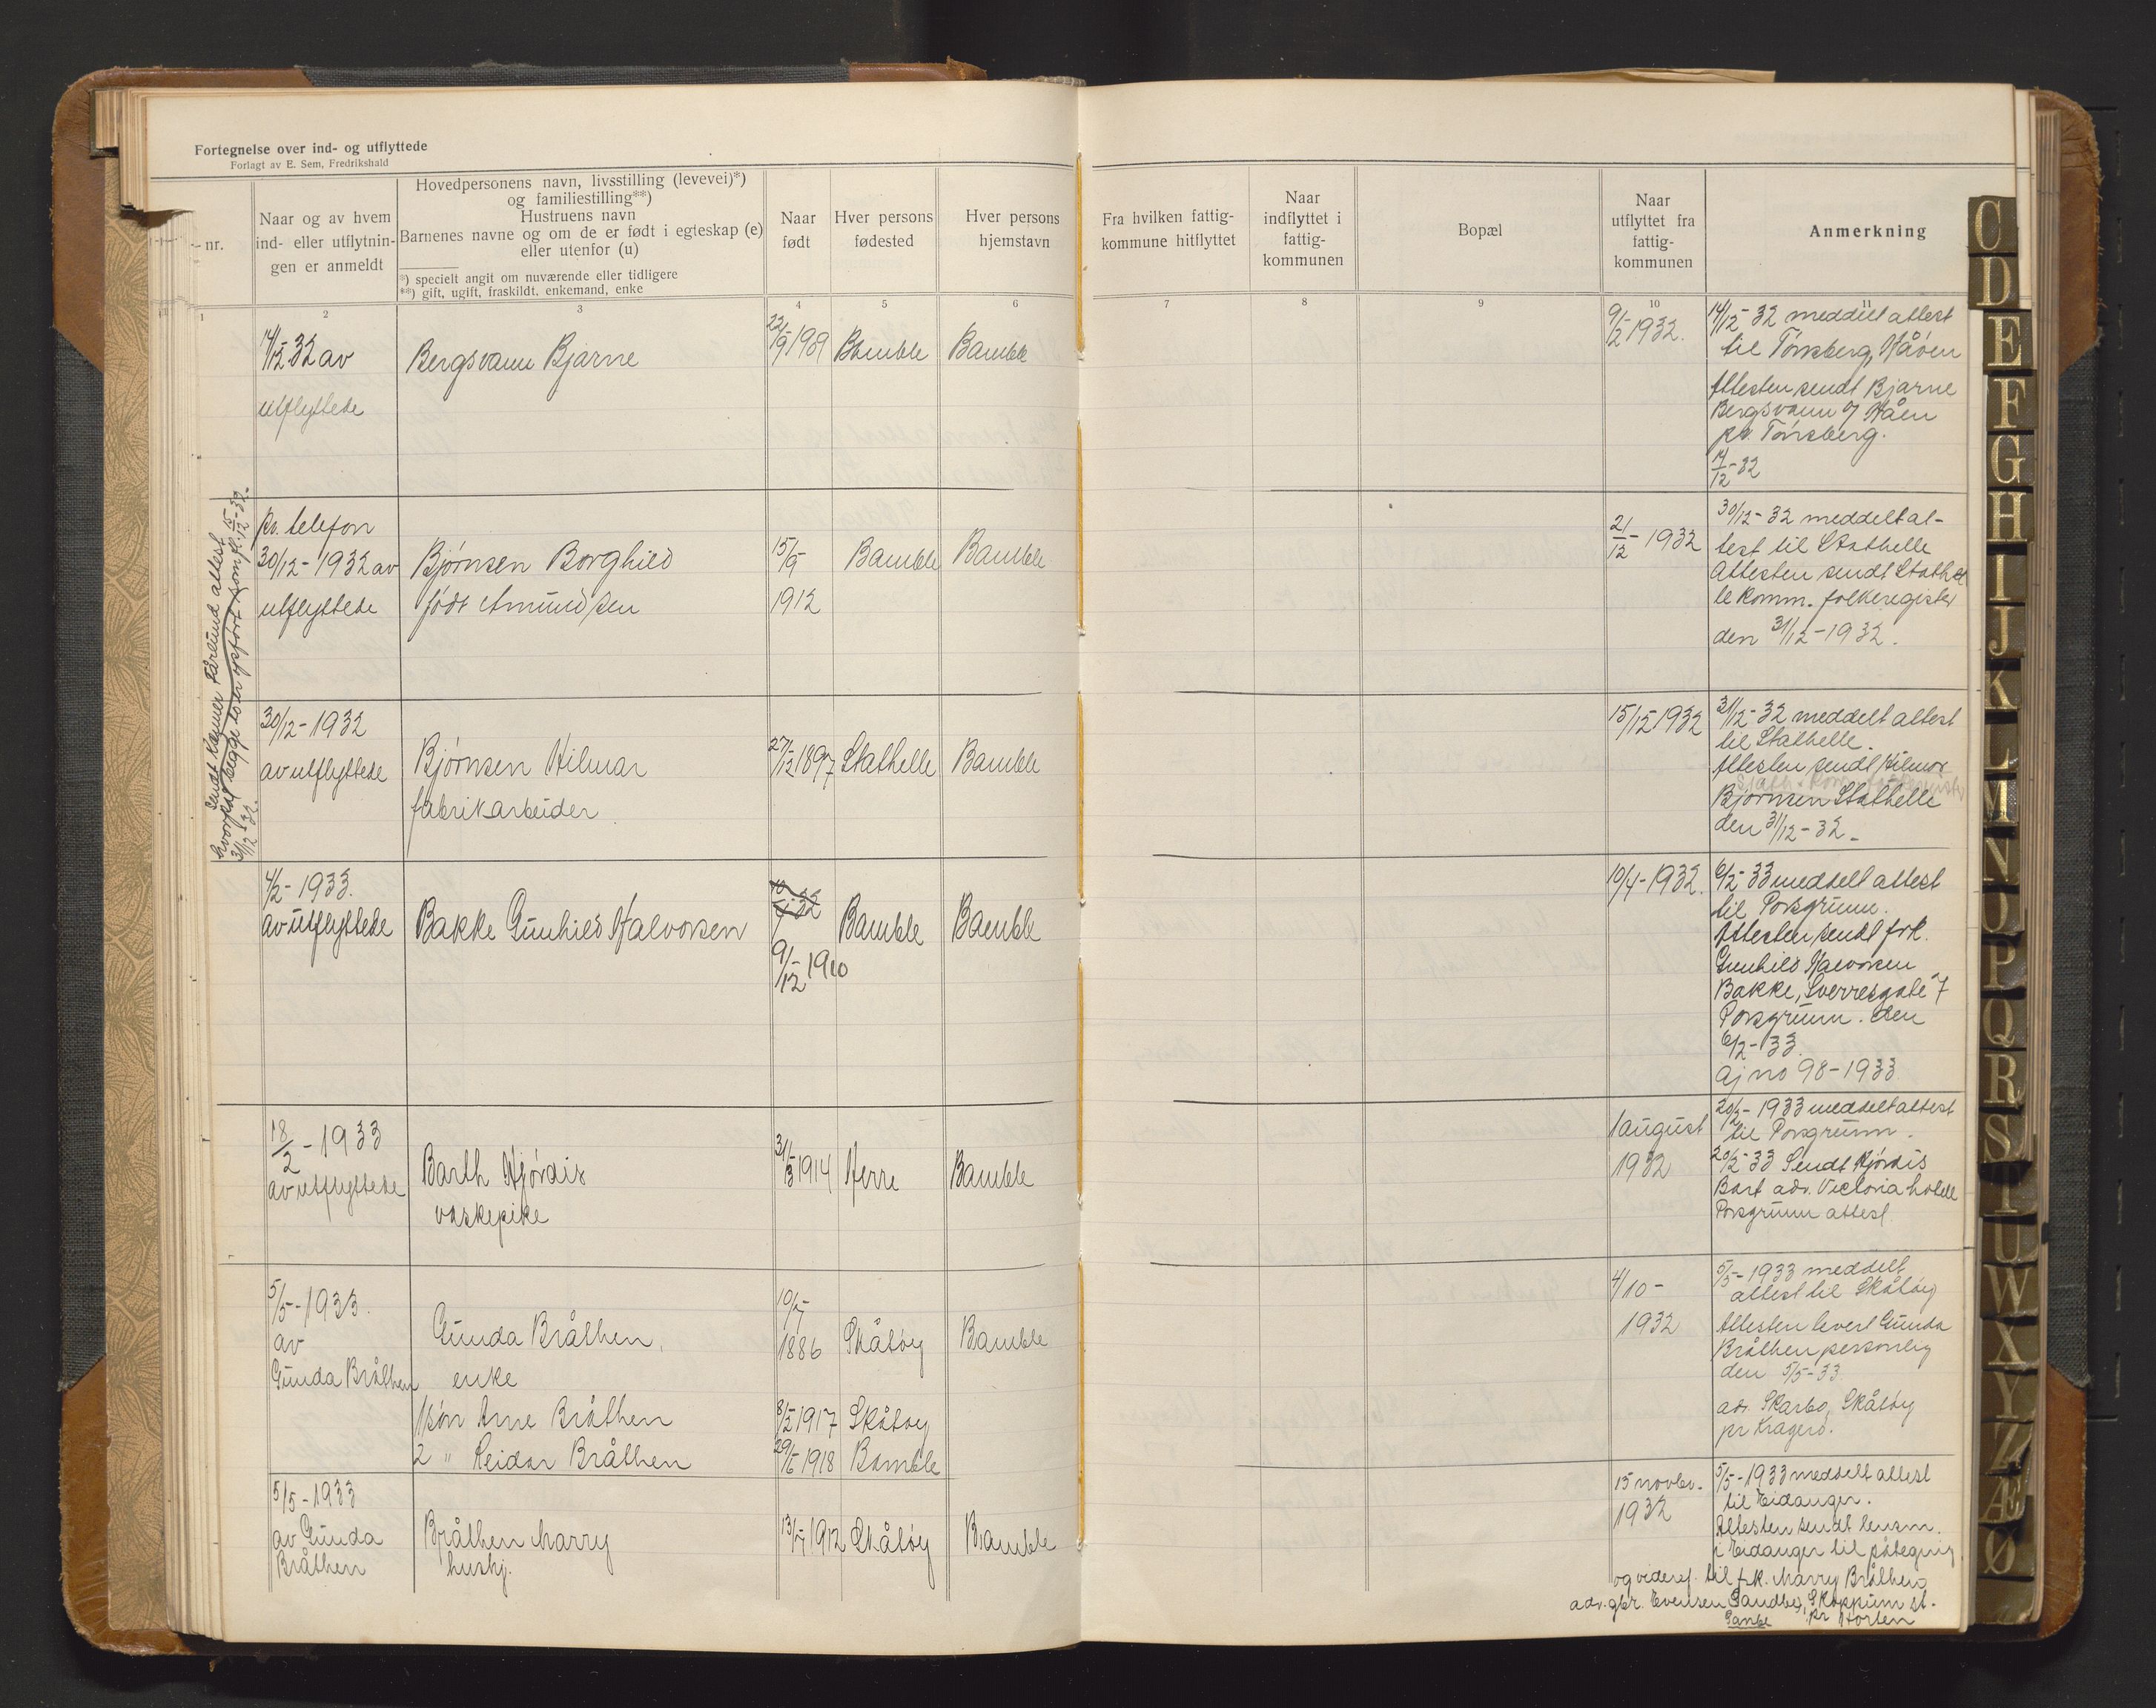 Fortegnelse over ind- og utflyttede
Forlagt av E. Sem, Fredrikshald
nr.
Naar og av hvem
ind- eller utflytnin-
gen er anmeldt
Hovedpersonens navn, livsstilling (levevei)*)
og familiestilling**)
Hustruens navn
Barnenes navne og om de er født i egteskap (e)
eller utenfor (u)
*) specielt angit om nuværende eller tidligere
**) gift, ugift, fraskildt, enkemand, enke
Naar
født
Hver persons
fødested
Hver persons
hjemstavn
Fra hvilken fattig-
kommune hitflyttet
Naar
indflyttet i
fattig-
kommunen
Bopæl
Naar
utflyttet fra
fattig-
kommunen
Anmerkning
1 2 3 4 5 6 7 8 9 10 11
14/12-32 av
utflyttede
Bergsvann Bjarne
22/9-1909
Bamble
Bamble
9/12-1932.
14/12-32 meddelt attest
til Tønsberg,
Attesten sendt Bjarne
Bergsvann
pr. Tønsberg.
14/12-32
pr. telefon
30/12-1932 av
utflyttede
Bjørnsen Borghild
født Amundsen
15/9
1912
Bamble
Bamble
21/12-1932
30/12-32 meddelt at-
test til Stathelle
Attesten sendt Stathel
le komm. folkeregister
den 31/12-1932.
Sendt attest
31/12 32.
30/12-1932
av utflyttede
Bjørnsen Hilmar
fabrikarbeider
27/12-1897
Stathelle
Bamble
15/12 1932
31/12-32 meddelt attest
til Stathelle.
Attesten sendt Hilmar
Bjørnsen Stathelle
den 31/12-32.
4/2-1933.
av utflyttede
Bakke Gunhild Halvorsen
9/12-1910
Bamble
Bamble
10/4-1932.
6/2-33 meddelt attest
til Porsgrunn.
Attesten sendt frk.
Gunhild Halvorsen
Bakke, Sverresgate 7
Porsgrunn. den
6/2-33.
aj no 98-1933
18/2-1933
av utflyttede
Barth Hjørdis
vaskepike
31/3 1914
Herre
Bamble
1 august
1932
20/2-1933 meddelt attest
til Porsgrunn.
20/2-33 Sendt Hjørdis
Bart adr. Victoria hotell
Porsgrunn attest.
5/5-1933.
av
Gunda Bråthen
Gunda Bråthen,
enke
10/7-
1886
Skåtøy
Bamble
1 søn Arne Bråthen
8/2 1917
Skåtøy
2 " Reidar Bråthen
29/6 1918
Bamble
4/10-
1932
5/5-1933 meddelt
attest til Skåtøy
Attesten levert Gunda
Bråthen personlig
den 5/5-33
adr. Skarbo, Skåtøy
pr Kragerø.
5/5-1933
av Gunda
Bråthen
Bråthen Marry
hushj.
13/7 1912
Skåtøy
Bamble
15 novbr.
1932
5/5-1933 meddelt attest
til Eidanger.
Attesten sendt lensm.
i Eidanger til påtegnig
og videref. til frk. Marry Bråthen
adr. gbr. Evensen Sandbo, Skoppum st.
pr Horten
C
D
E
F
G
H
I
J
K
L
M
N
O
P
Q
R
S
T
U
W
X
Y
Z
Æ
Ø